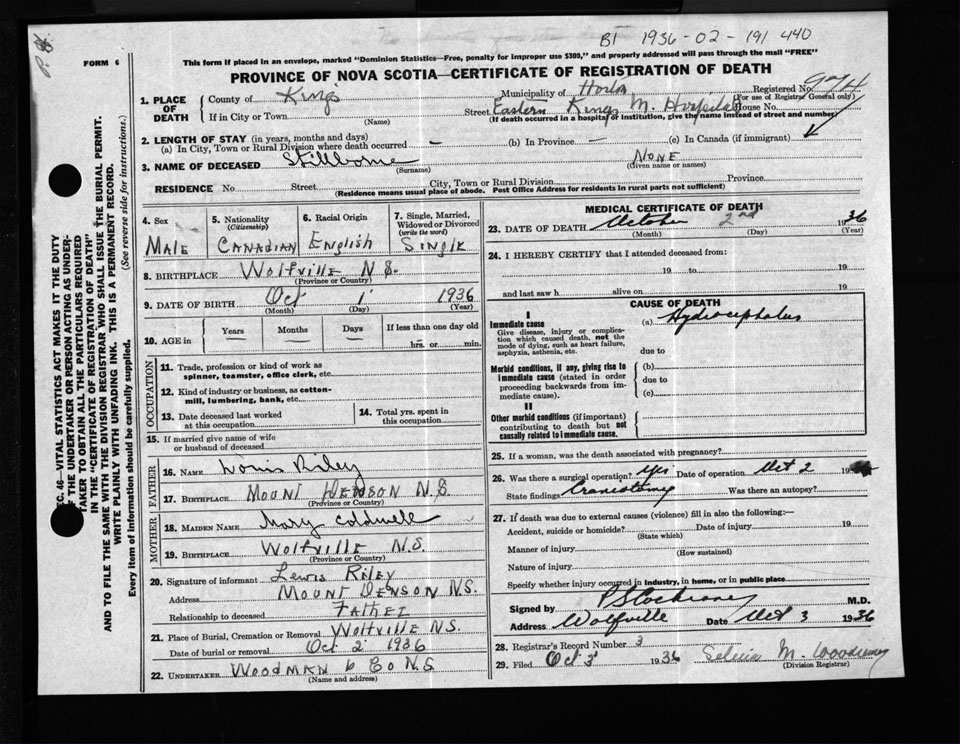 B1 1936-02-191440
FORM 6
This form if placed in an envelope, marked "Dominion Statistics—Free, penalty for improper use $300," and properly addressed will pass through the mail "FREE"
PROVINCE OF NOVA SCOTIA—CERTIFICATE OF REGISTRATION OF DEATH
Registered No.
(For use of Registrar General only)
1. PLACE OF DEATH
County of Kings Municipality of Horton
If in City or Town (Name) Street Eastern Kings M. Hospital House No.
(If death occurred in a hospital or institution, give the name instead of street and number)
2. LENGTH OF STAY (in years, months and days)
(a) In City, Town or Rural Division where death occurred – (b) In Province – (c) In Canada (if immigrant)
3. NAME OF DECEASED Stillborne None
(Surname) (Given name or names)
RESIDENCE No. Street City, Town or Rural Division Province
(Residence means usual place of abode. Post Office Address for residents in rural parts not sufficient)
4. Sex Male
5. Nationality (Citizenship) Canadian
6. Racial Origin English
7. Single, Married, Widowed or Divorced (write the word) Single
8. BIRTHPLACE Wolfville N.S.
(Province or Country)
9. DATE OF BIRTH Oct 1 1936
(Month) (Day) (Year)
10. AGE in Years Months Days If less than one day old
hrs. or min.
OCCUPATION
11. Trade, profession or kind of work as spinner, teamster, office clerk, etc.
12. Kind of industry or business, as cotton-mill, lumbering, bank, etc.
13. Date deceased last worked at this occupation
14. Total yrs. spent in this occupation
15. If married give name of wife or husband of deceased
FATHER
16. NAME Riley
17. BIRTHPLACE Mount N.S.
(Province or Country)
MOTHER
18. MAIDEN NAME Mary Coldwell
19. BIRTHPLACE Wolfville N.S.
(Province or Country)
20. Signature of informant Lewis Riley
Address Mount Denson N.S.
Relationship to deceased Father
21. Place of Burial, Cremation or Removal Wolfville N.S.
Date of burial or removal Oct 2 1936
22. UNDERTAKER Woodman & Co N.S.
(Name and address)
MEDICAL CERTIFICATE OF DEATH
23. DATE OF DEATH October 2nd 1936
(Month) (Day) (Year)
24. I HEREBY CERTIFY that I attended deceased from:
19 to 19
and last saw h alive on 19
CAUSE OF DEATH
I
Immediate cause
Give disease, injury or complication which caused death, not the mode of dying, such as heart failure, asphyxia, asthenia, etc.
(a) Hydrocephalus
due to
Morbid conditions, if any, giving rise to immediate cause (stated in order proceeding backwards from immediate cause).
(b)
due to
(c)
II
Other morbid conditions (if important) contributing to death but not causally related to immediate cause.
25. If a woman, was the death associated with pregnancy?
26. Was there a surgical operation? Yes Date of operation Oct 2 19
State findings Craniotomy Was there an autopsy?
27. If death was due to external causes (violence) fill in also the following:—
Accident, suicide or homicide? Date of injury 19
(State which)
Manner of injury
(How sustained)
Nature of injury
Specify whether injury occurred in industry, in home, or in public place
Signed by Cochrane M.D.
Address Wolfville Date Oct 3 1936
28. Registrar's Record Number 3
29. Filed Oct 3 1936 M.
(Division Registrar)
SEC. 46—VITAL STATISTICS ACT MAKES IT THE DUTY
OF THE UNDERTAKER OR PERSON ACTING AS UNDER-
TAKER TO OBTAIN ALL THE PARTICULARS REQUIRED
IN THE "CERTIFICATE OF REGISTRATION OF DEATH"
AND TO FILE THE SAME WITH THE DIVISION REGISTRAR WHO SHALL ISSUE THE BURIAL PERMIT.
WRITE PLAINLY WITH UNFADING INK. THIS IS A PERMANENT RECORD.
Every item of information should be carefully supplied. (See reverse side for instructions.)